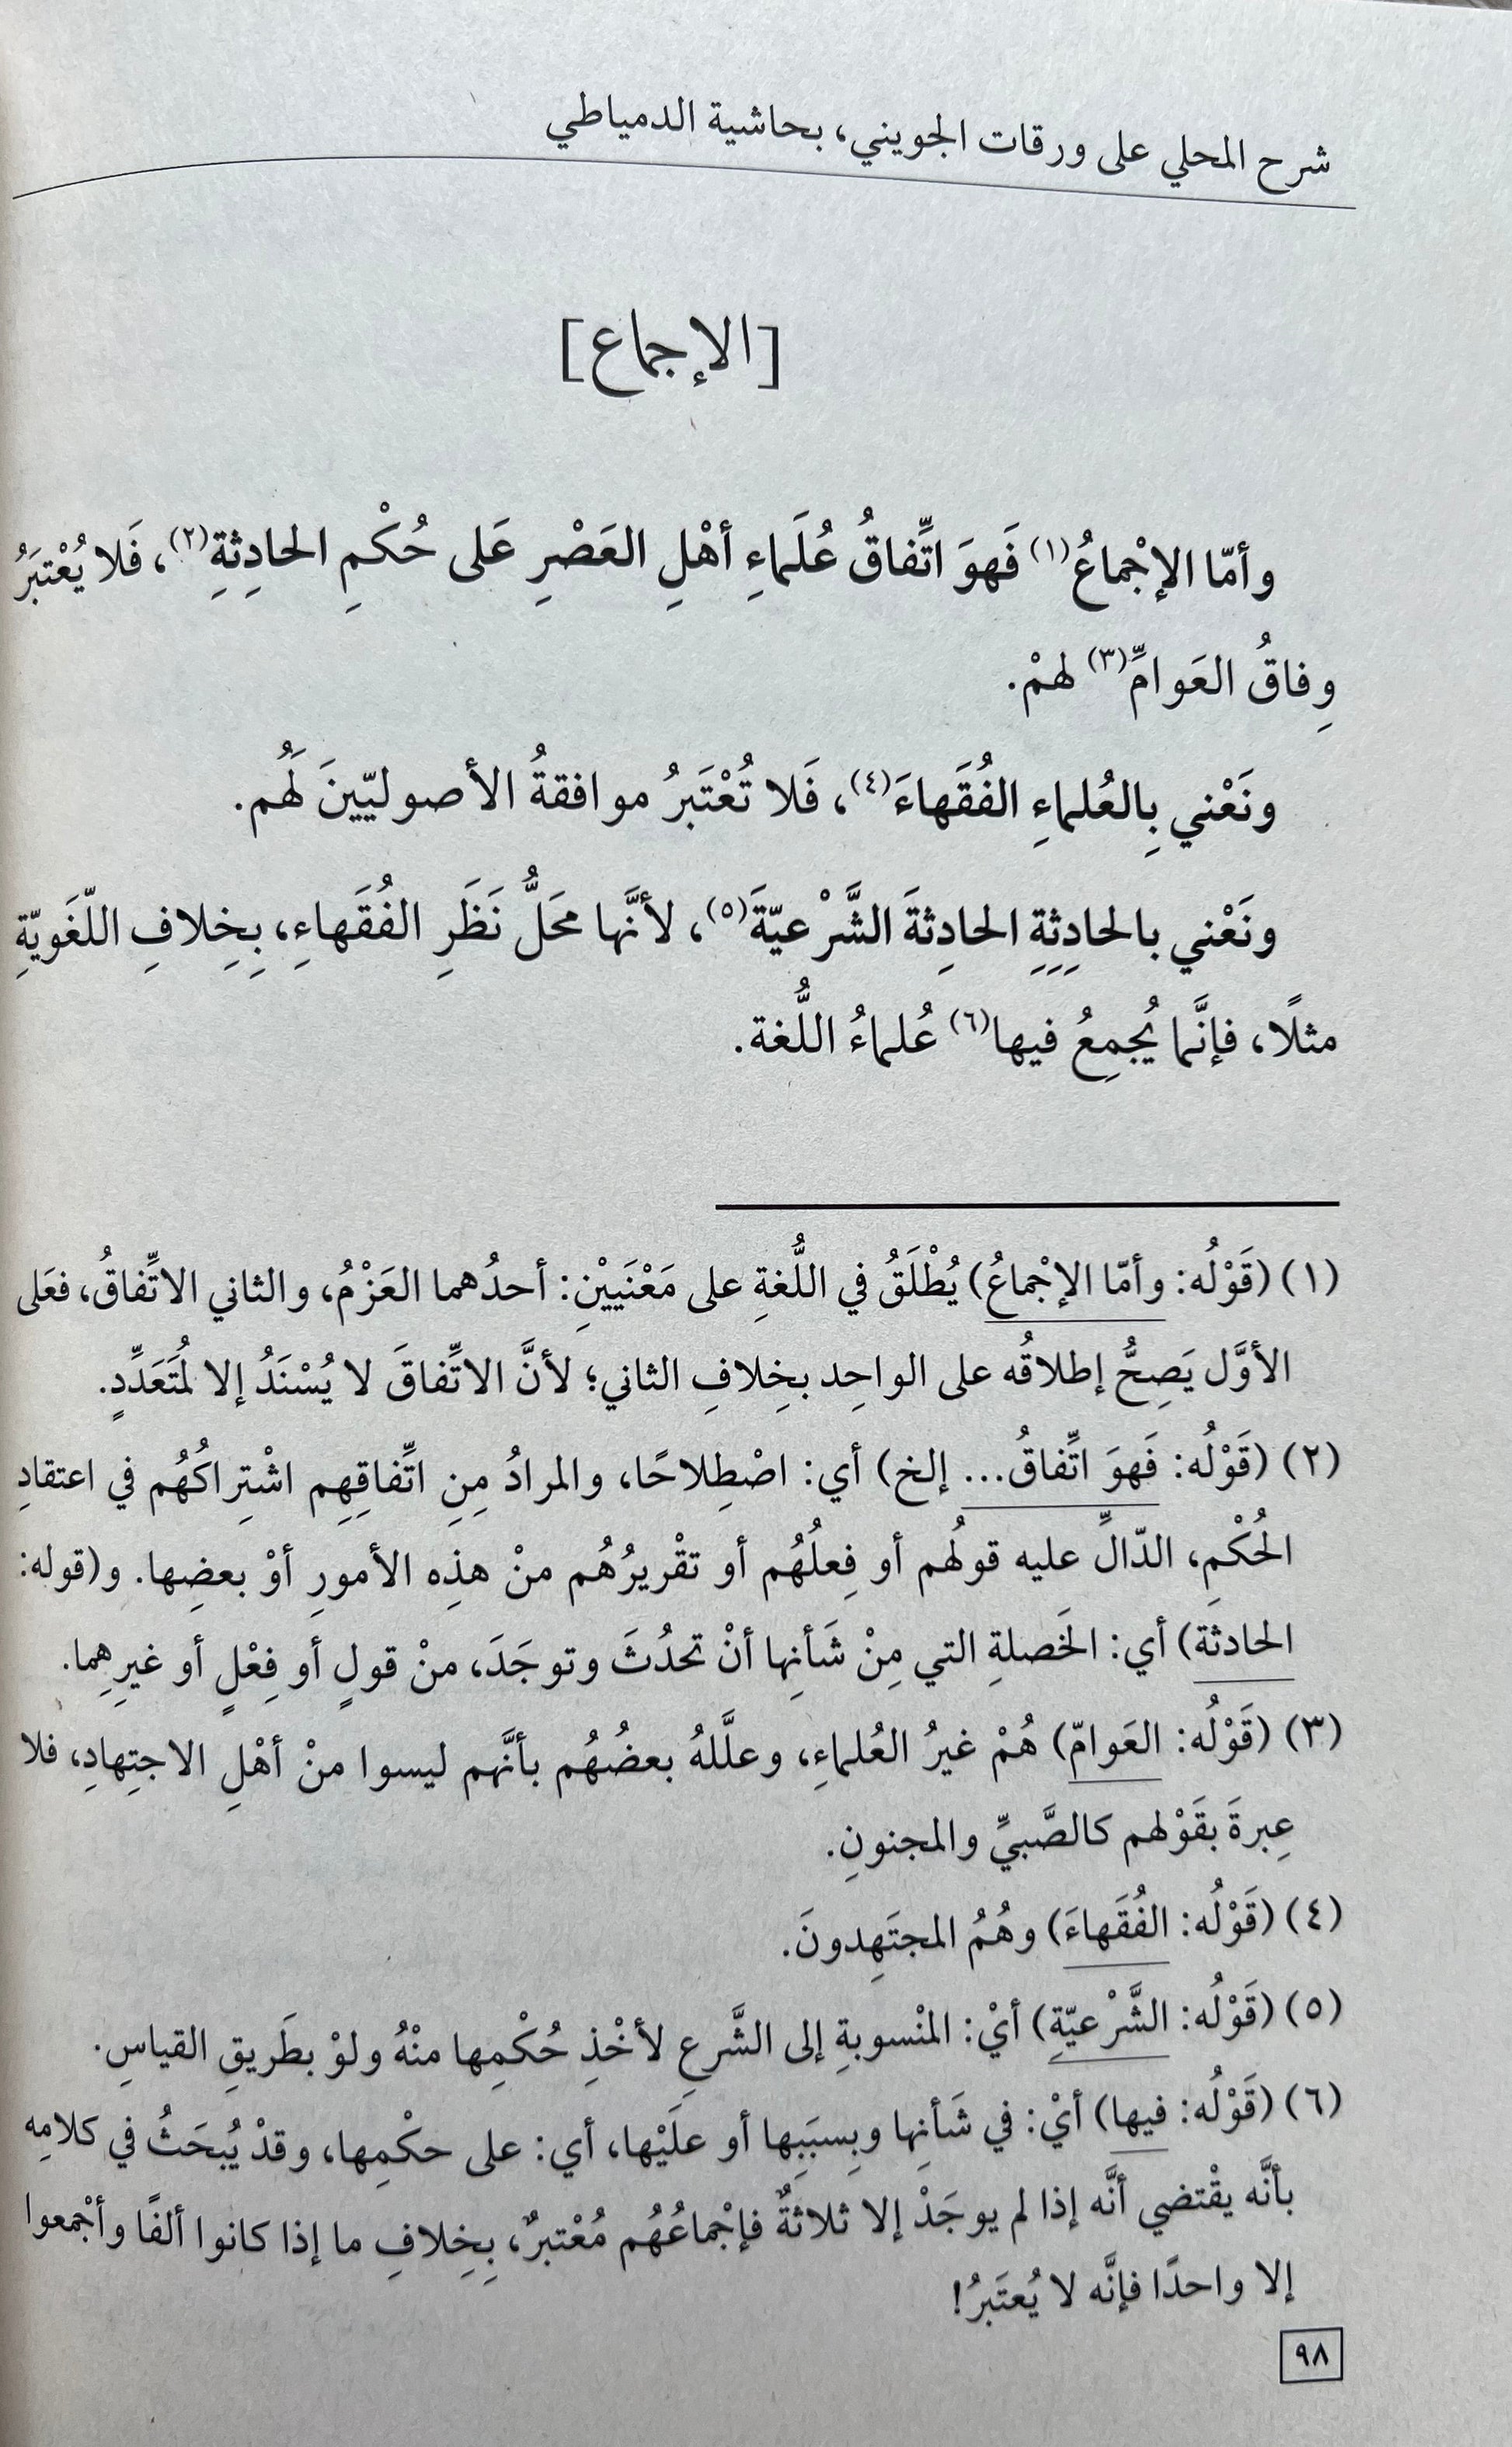 شرح المحلي على ورقات الجويني، بحاشية الدمياطي
[الإجماع]
وأمّا الإجْماعُ(١) فَهوَ اتِّفاقُ عُلَماءِ أهْلِ العَصْرِ عَلى حُكْمِ الحادِثةِ(٢)، فَلا يُعْتبَرُ
وِفاقُ العَوامِّ(٣) لهمْ.
ونَعْني بِالعُلماءِ الفُقَهاءَ(٤)، فَلا تُعْتَبرُ موافقةُ الأصوليّينَ لَهُم.
ونَعْني بالحادِثِةِ الحادِثةَ الشَّرْعيّةَ(٥)، لأنَّها محَلُّ نَظَرِ الفُقَهاءِ، بِخِلافِ اللّغَويّةِ
مثلًا، فإنَّما يُجمِعُ فيها(٦) عُلماءُ اللُّغة.
(١) (قَوْلُه: وأمّا الإجْماعُ) يُطْلَقُ في اللُّغةِ على مَعْنَيَيْنِ: أحدُهما العَزْمُ، والثاني الاتِّفاقُ، فعَلى
الأوَّل يَصِحُّ إطلاقُه على الواحِد بخِلافِ الثاني؛ لأنَّ الاتِّفاقَ لا يُسْنَدُ إلا لمُتَعَدِّدٍ.
(٢) (قَوْلُه: فَهوَ اتِّفاقُ... إلخ) أي: اصْطِلاحًا، والمرادُ مِنِ اتِّفاقِهِم اشْتِراكُهُم في اعتقادِ
الحُكْمِ، الدّالِّ عليه قولُهم أو فِعلُهُم أو تقْريرُهُم منْ هذِه الأمورِ أوْ بعضِها. و(قوله:
الحادثَة) أي: الخَصلةِ التي مِنْ شَأنِها أنْ تحدُثَ وتوجَدَ، منْ قولٍ أو فِعْلٍ أو غيرِهِما.
(٣) (قَوْلُه: العَوامّ) هُمْ غيرُ العُلماءِ، وعلَّلهُ بعضُهُم بأنَّهم ليسوا منْ أهْلِ الاجتِهادِ، فلا
عِبرةَ بقَوْلهم كالصَّبيِّ والمجنونِ.
(٤) (قَوْلُه: الفُقَهاءَ) وهُمُ المجتَهِدونَ.
(٥) (قَوْلُه: الشَّرْعيّةِ) أيْ: المنْسوبةِ إلى الشَّرعِ لأخْذِ حُكْمِها منْهُ ولوْ بطَريقِ القياسِ.
(٦) (قَوْلُه: فيها) أيْ: في شَأنِها وبِسبَبِها أو علَيْها، أي: على حكْمِها، وقدْ يُبحَثُ في كلامِه
بأنَّه يقْتضي أنَّه إذا لم يوجَدْ إلا ثلاثةٌ فإجْماعُهُم مُعْتبرٌ، بِخِلافِ ما إذا كانوا ألفًا وأجْمعوا
إلا واحدًا فإنَّه لا يُعتَبرُ!
٩٨